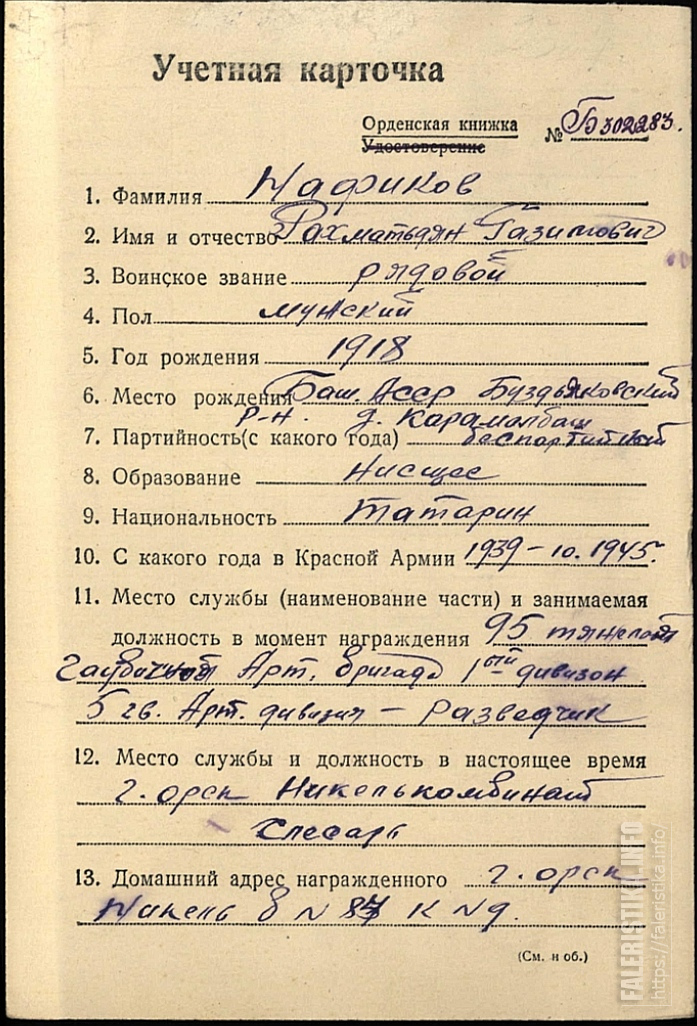 Учетная карточка
Орденская книжка
Удостоверение
№ Б302283.
1. Фамилия Нафиков
2. Имя и отчество Рахматьдян Газимович
3. Воинское звание рядовой
4. Пол мужский
5. Год рождения 1918
6. Место рождения Баш. Асср Буздьяковский
р-н. д. Карамалбаш
7. Партийность(с какого года) беспортийный
8. Образование нисщее
9. Национальность татарин
10. С какого года в Красной Армии 1939 – 10. 1945г.
11. Место службы (наименование части) и занимаемая
должность в момент награждения 95 тяжелой
Арт. бригада 1ый дивизон
5 гв. Арт. дивизия – Разведчик
12. Место службы и должность в настоящее время
г. орск Никелькомбинат
Слесарь
13. Домашний адрес награжденного г. орск
Никель б N К N 9.
(См. н об.)
FALERISTIKA.INFO
https://faleristika.info